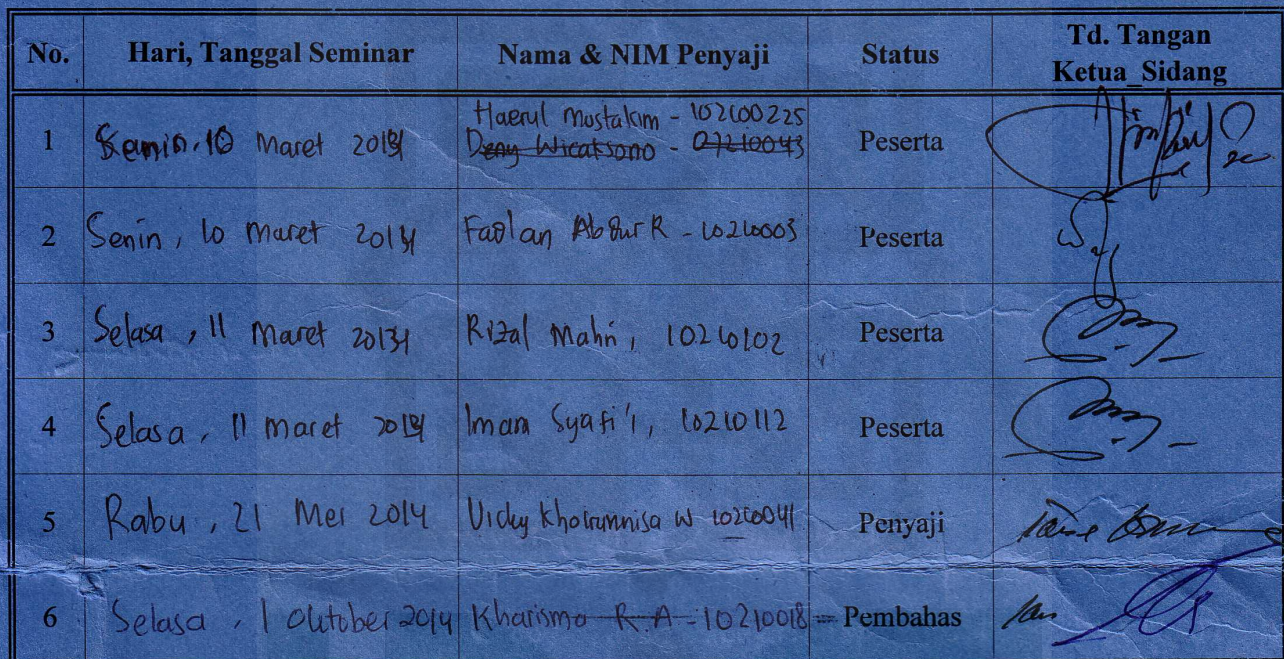 No. Hari, Tanggal Seminar Nama & NIM Penyaji Status Td. Tangan
Ketua Sidang
Haerul Mustakim - 102100225
1 Senin, 10 Maret 2014 Deny Wicaksono - 07210043 Peserta
2 Senin, 10 Maret 2014 Fadlan Abdur R - 10210003 Peserta
3 Selasa, 11 Maret 2014 Rizal Mahri, 10210102 Peserta
4 Selasa, 11 Maret 2014 Imam Syafi'i, 10210112 Peserta
5 Rabu, 21 Mei 2014 Vicky Khoirunnisa W 10210041 Penyaji
6 Selasa, 1 Oktober 2014 Kharisma R.A - 10210018 Pembahas